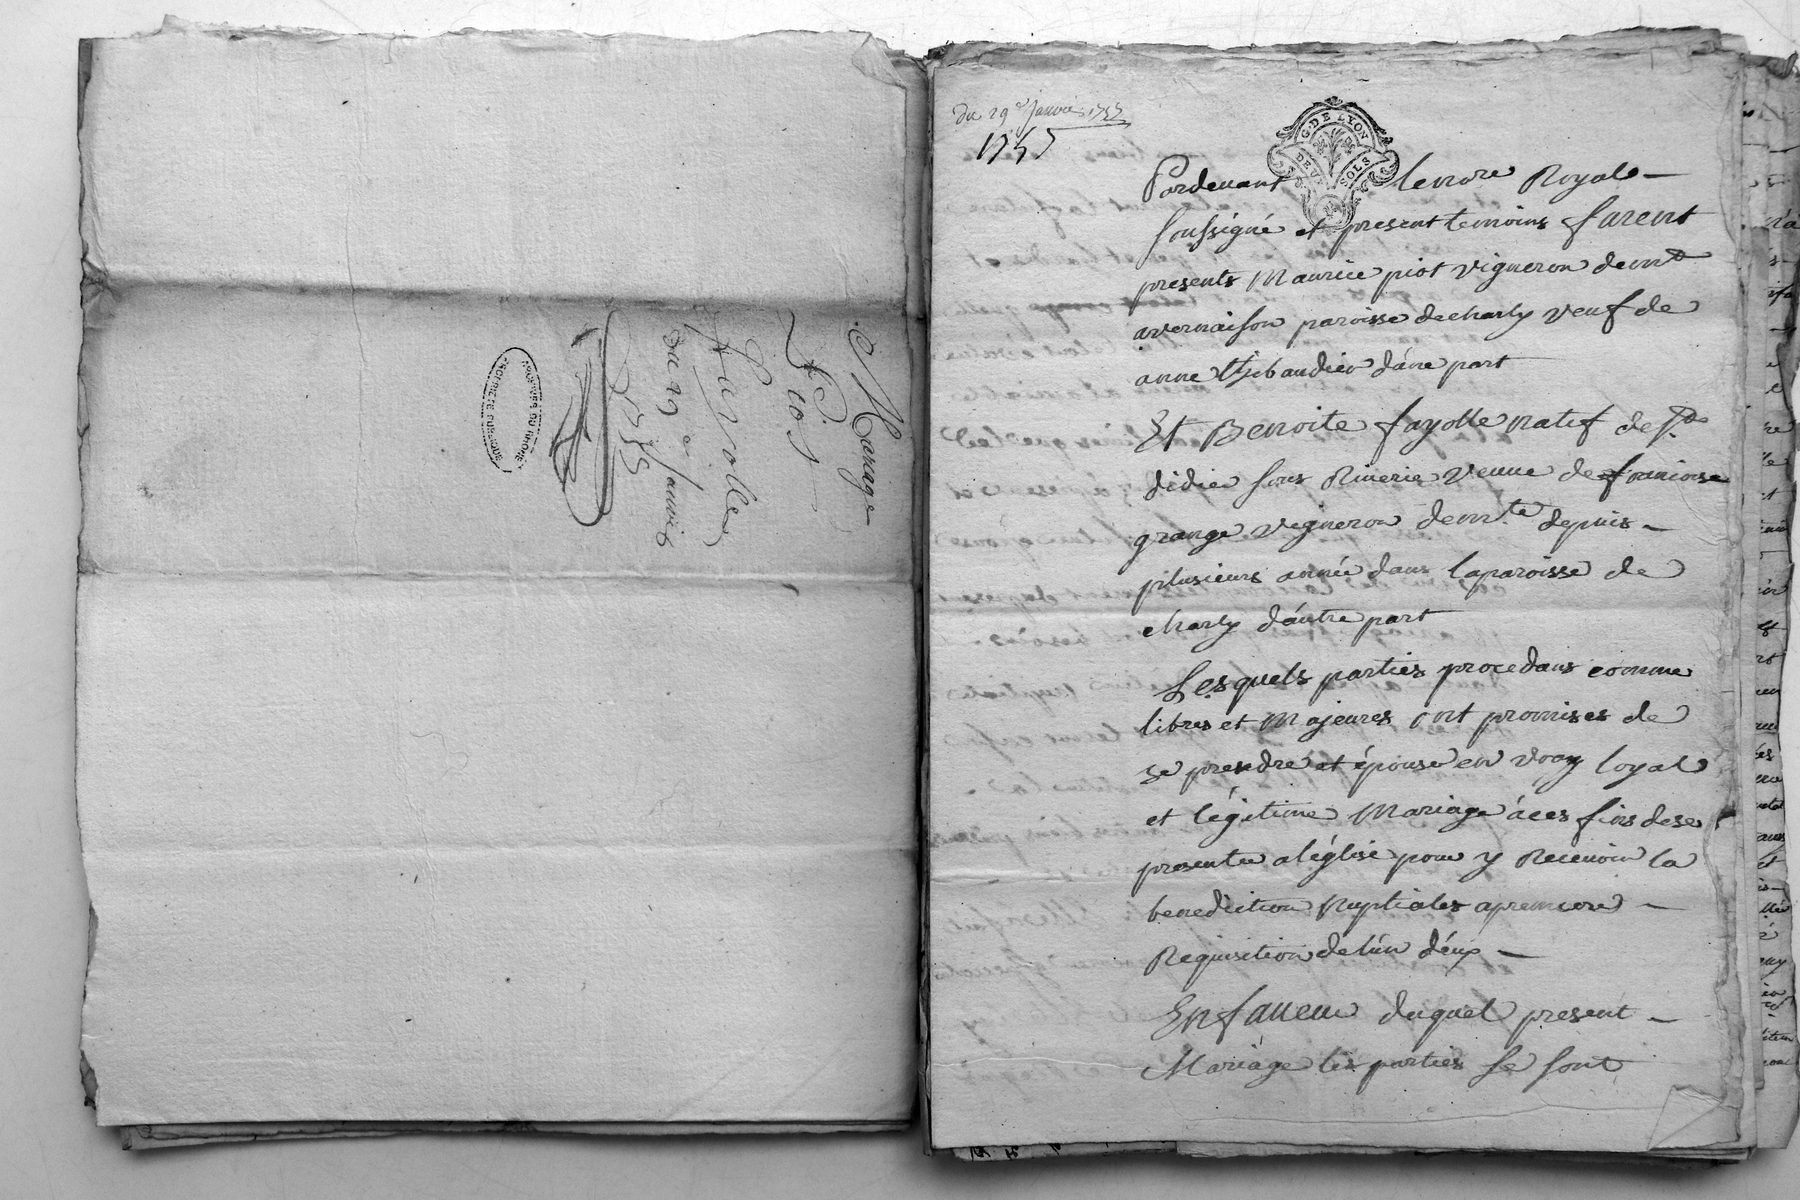 Mariage
Piot
Fayolle
du 29e Janvier
1755
ARCHIVES DU RHONE
PROPRIETE PUBLIQUE
du 29e Janvier 1755
1755
G. DE LYON
DEUX SOLS
Pardevant lenore Royale
soussigné et present temoins furent
presents Maurice piot vigneron demt
a vernaison paroisse decharly veuf de
anne Gibaudier d'úne part
Et Benoite fayolle natif de St
didier sous Riverie veuve de francoise
grange vigneron demte depuis
plusieurs année dans laparoisse de
charly d'áutre part
Lesquels parties procedans comme
libres et Majeures ont promises de
se prendre et épouse en vray loyal
et légitime Mariage áces fins dese
presenter aléglise pour y Recevoir la
benediction Nuptiales apremiere
Requisition delún d'éux
En faveur duquel present
Mariáge les parties se sont